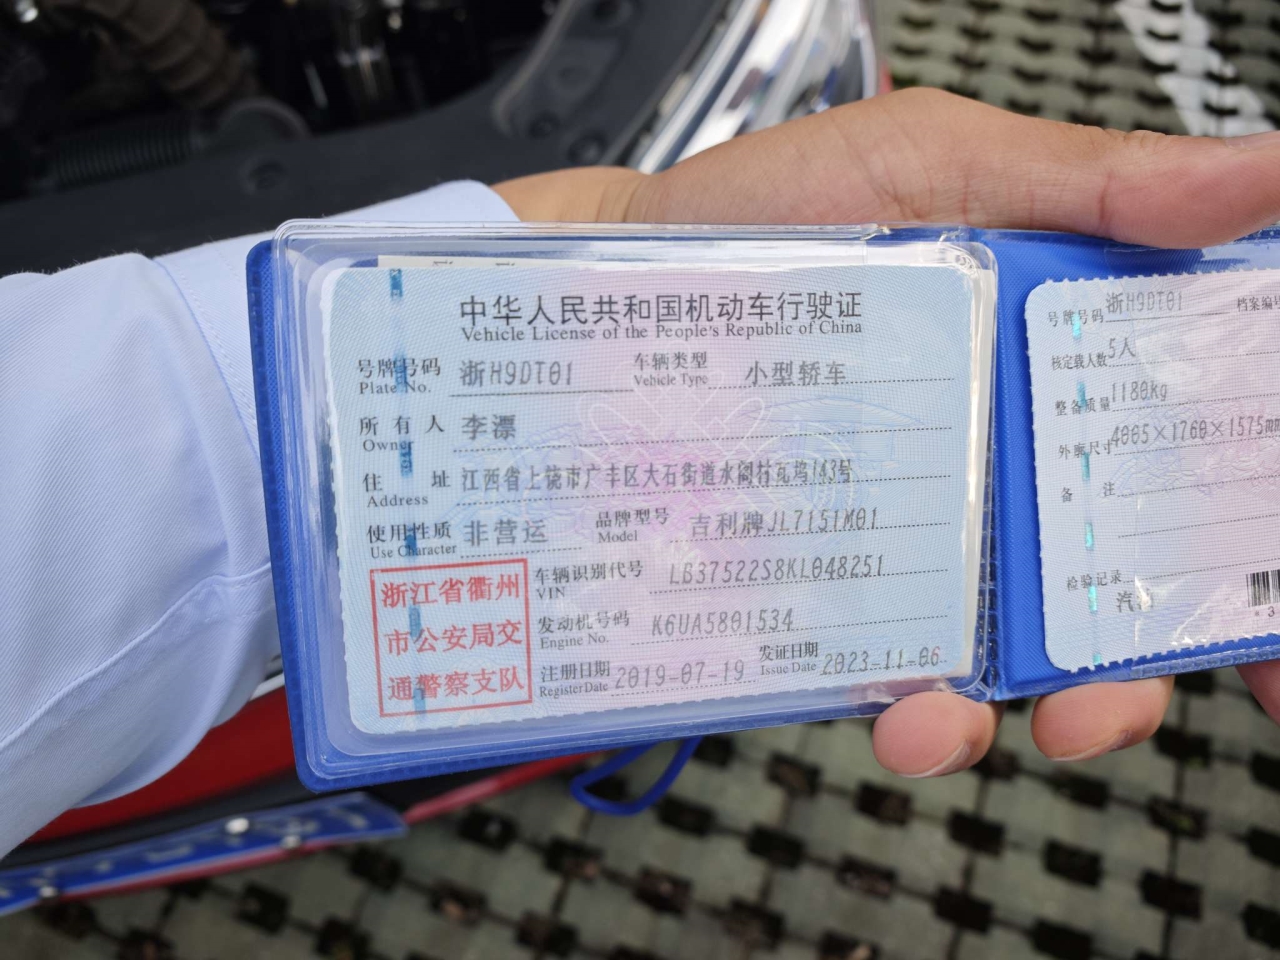 中华人民共和国机动车行驶证
Vehicle License of the People's Republic of China
号牌号码 浙H9DT01 车辆类型 小型轿车
Plate No. Vehicle Type
所有人 李漂
Owner
住址 江西省上饶市广丰区大石街道水阁村瓦坞143号
Address
使用性质 非营运 品牌型号 吉利牌JL7151M01
Use Character Model
浙江省衢州
市公安局交
通警察支队
车辆识别代号 LB37522S8KL048251
VIN
发动机号码 K6UA5801534
Engine No.
注册日期 2019-07-19 发证日期 2023-11-06
Register Date Issue Date
号牌号码 浙H9DT01 档案编号
核定载人数 5人
整备质量 1180kg
外廓尺寸 4005×1760×1575mm
备注
检验记录